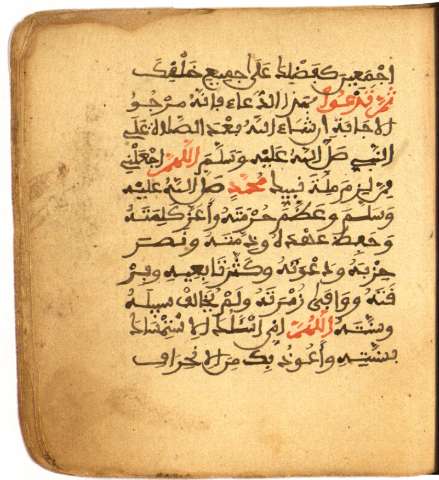 اجمعين كفضلك على جميع خلقك
ثم تدعوا بهذا الدعاء فإنه مرجو
الاجابة ان شاء الله بعد الصلاة على
النبي صلى الله عليه وسلم اللهم اجعلني
ممن لزم ملة نبيك محمد صلى الله عليه
وسلم وعظم حرمته وأعز كلمته
وحفظ عهده وذمته ونصر
حزبه ودعوته وكثر تابعيه وفر
قته ووافى زمرته ولم يخالف سبيله
وسنته اللهم اني اسئلك الاستمساك
بسنته وأعوذ بك من الانحراف